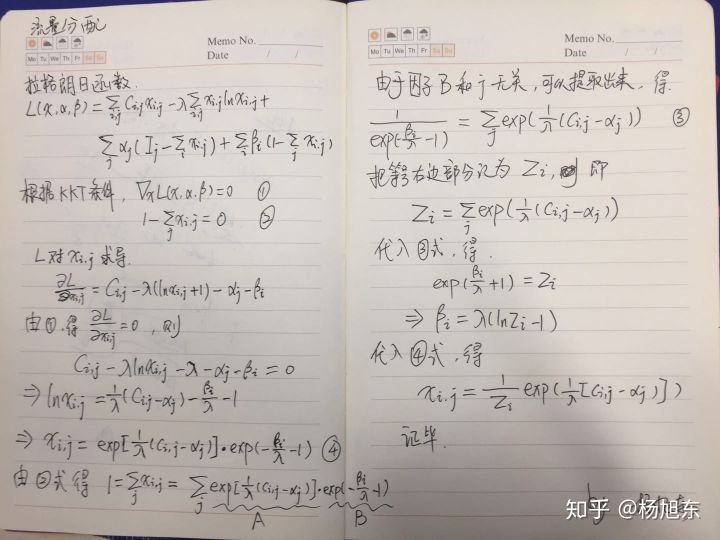 流量分配
Memo No.
Mo Tu We Th Fr Sa Su
Date / /
拉格朗日函数.
L(x,α,β) = Σ_{i,j} C_{i,j} x_{i,j} - λ Σ_{i,j} x_{i,j} ln x_{i,j} +
Σ_j α_j (I_j - Σ_i x_{i,j}) + Σ_i β_i (1 - Σ_j x_{i,j})
根据KKT条件, ∇_x L(x,α,β) = 0 ①
1 - Σ_j x_{i,j} = 0 ②
L对x_{i,j}求导.
∂L/∂x_{i,j} = C_{i,j} - λ(ln x_{i,j} + 1) - α_j - β_i
由①,得 ∂L/∂x_{i,j} = 0 , 则
C_{i,j} - λ ln x_{i,j} - λ - α_j - β_i = 0
⇒ ln x_{i,j} = 1/λ (C_{i,j} - α_j) - β_i/λ - 1
⇒ x_{i,j} = exp[1/λ (C_{i,j} - α_j)] · exp(-β_i/λ - 1) ④
由②式得 1 = Σ_j x_{i,j} = Σ_j exp[1/λ (C_{i,j} - α_j)] · exp(-β_i/λ - 1)
A B
Memo No.
Mo Tu We Th Fr Sa Su
Date / /
由于因子B和j无关,可以提取出来,得.
1/exp(-β_i/λ - 1) = Σ_j exp(1/λ (C_{i,j} - α_j)) ③
把等号右边部分记为 Z_i, 即
Z_i = Σ_j exp(1/λ (C_{i,j} - α_j))
代入③式,得.
exp(β_i/λ + 1) = Z_i
⇒ β_i = λ(ln Z_i - 1)
代入④式,得
x_{i,j} = 1/Z_i exp(1/λ [C_{i,j} - α_j])
证毕.
by
知乎 @杨旭东